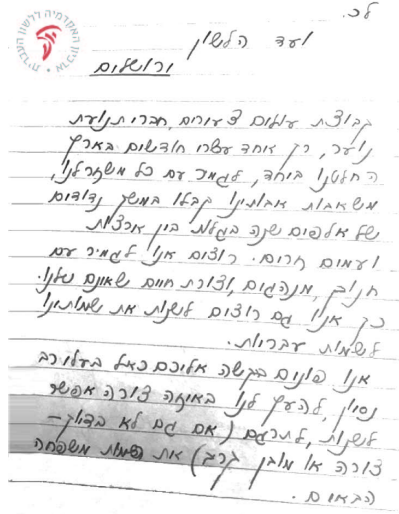 ארכיון האקדמיה ללשון העברית
לכ.
ועד הלשון
ירושלים
קבוצת עולים צעירים, חברי תנועת
נוער, רק אחד עשר חודשים בארץ
החלטנו ביחד, לגמור עם כל מה
אבותינו קבלו במשך נדודים
של אלפים שנה בגלות בין ארצות
ועמים זרים. רוצים אנו לגמור עם
חנוך, מנהגים, וצורת חיים שאינם שלנו.
כך אנו גם רוצים לשנות את שמותינו
לשמות עבריות.
אנו פונים בבקשה אליכם כאל בעלי רב
נסיון, להעיץ לנו באיזה צורה אפשר
לשנות, לתרגם (אם גם לא בדיוק –
צורה או מובן קרב) את שמות משפחה
הבאים.